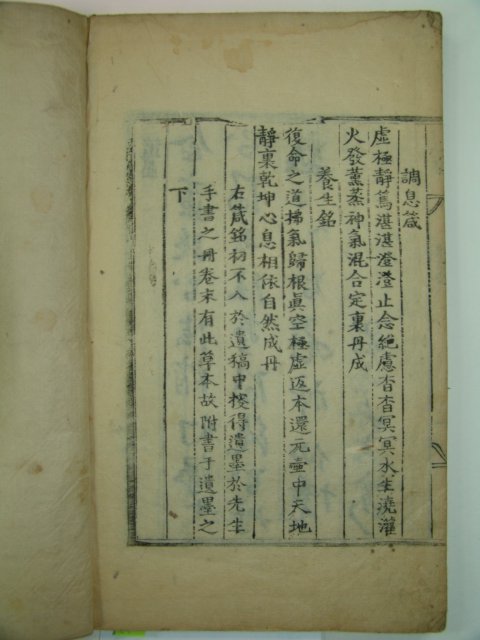 調息箴
虛極靜篤湛湛澄澄止念絕慮杳杳冥冥水生澆灌
火發薰蒸神氣混合定裏丹成
養生銘
復命之道拂氣歸根眞空極虛返本還元壷中天地
靜裏乾坤心息相依自然成丹
右箴銘初不入於遺稿中檢得遺墨於先生
手書之丹卷末有此草本故附書于遺墨之
下